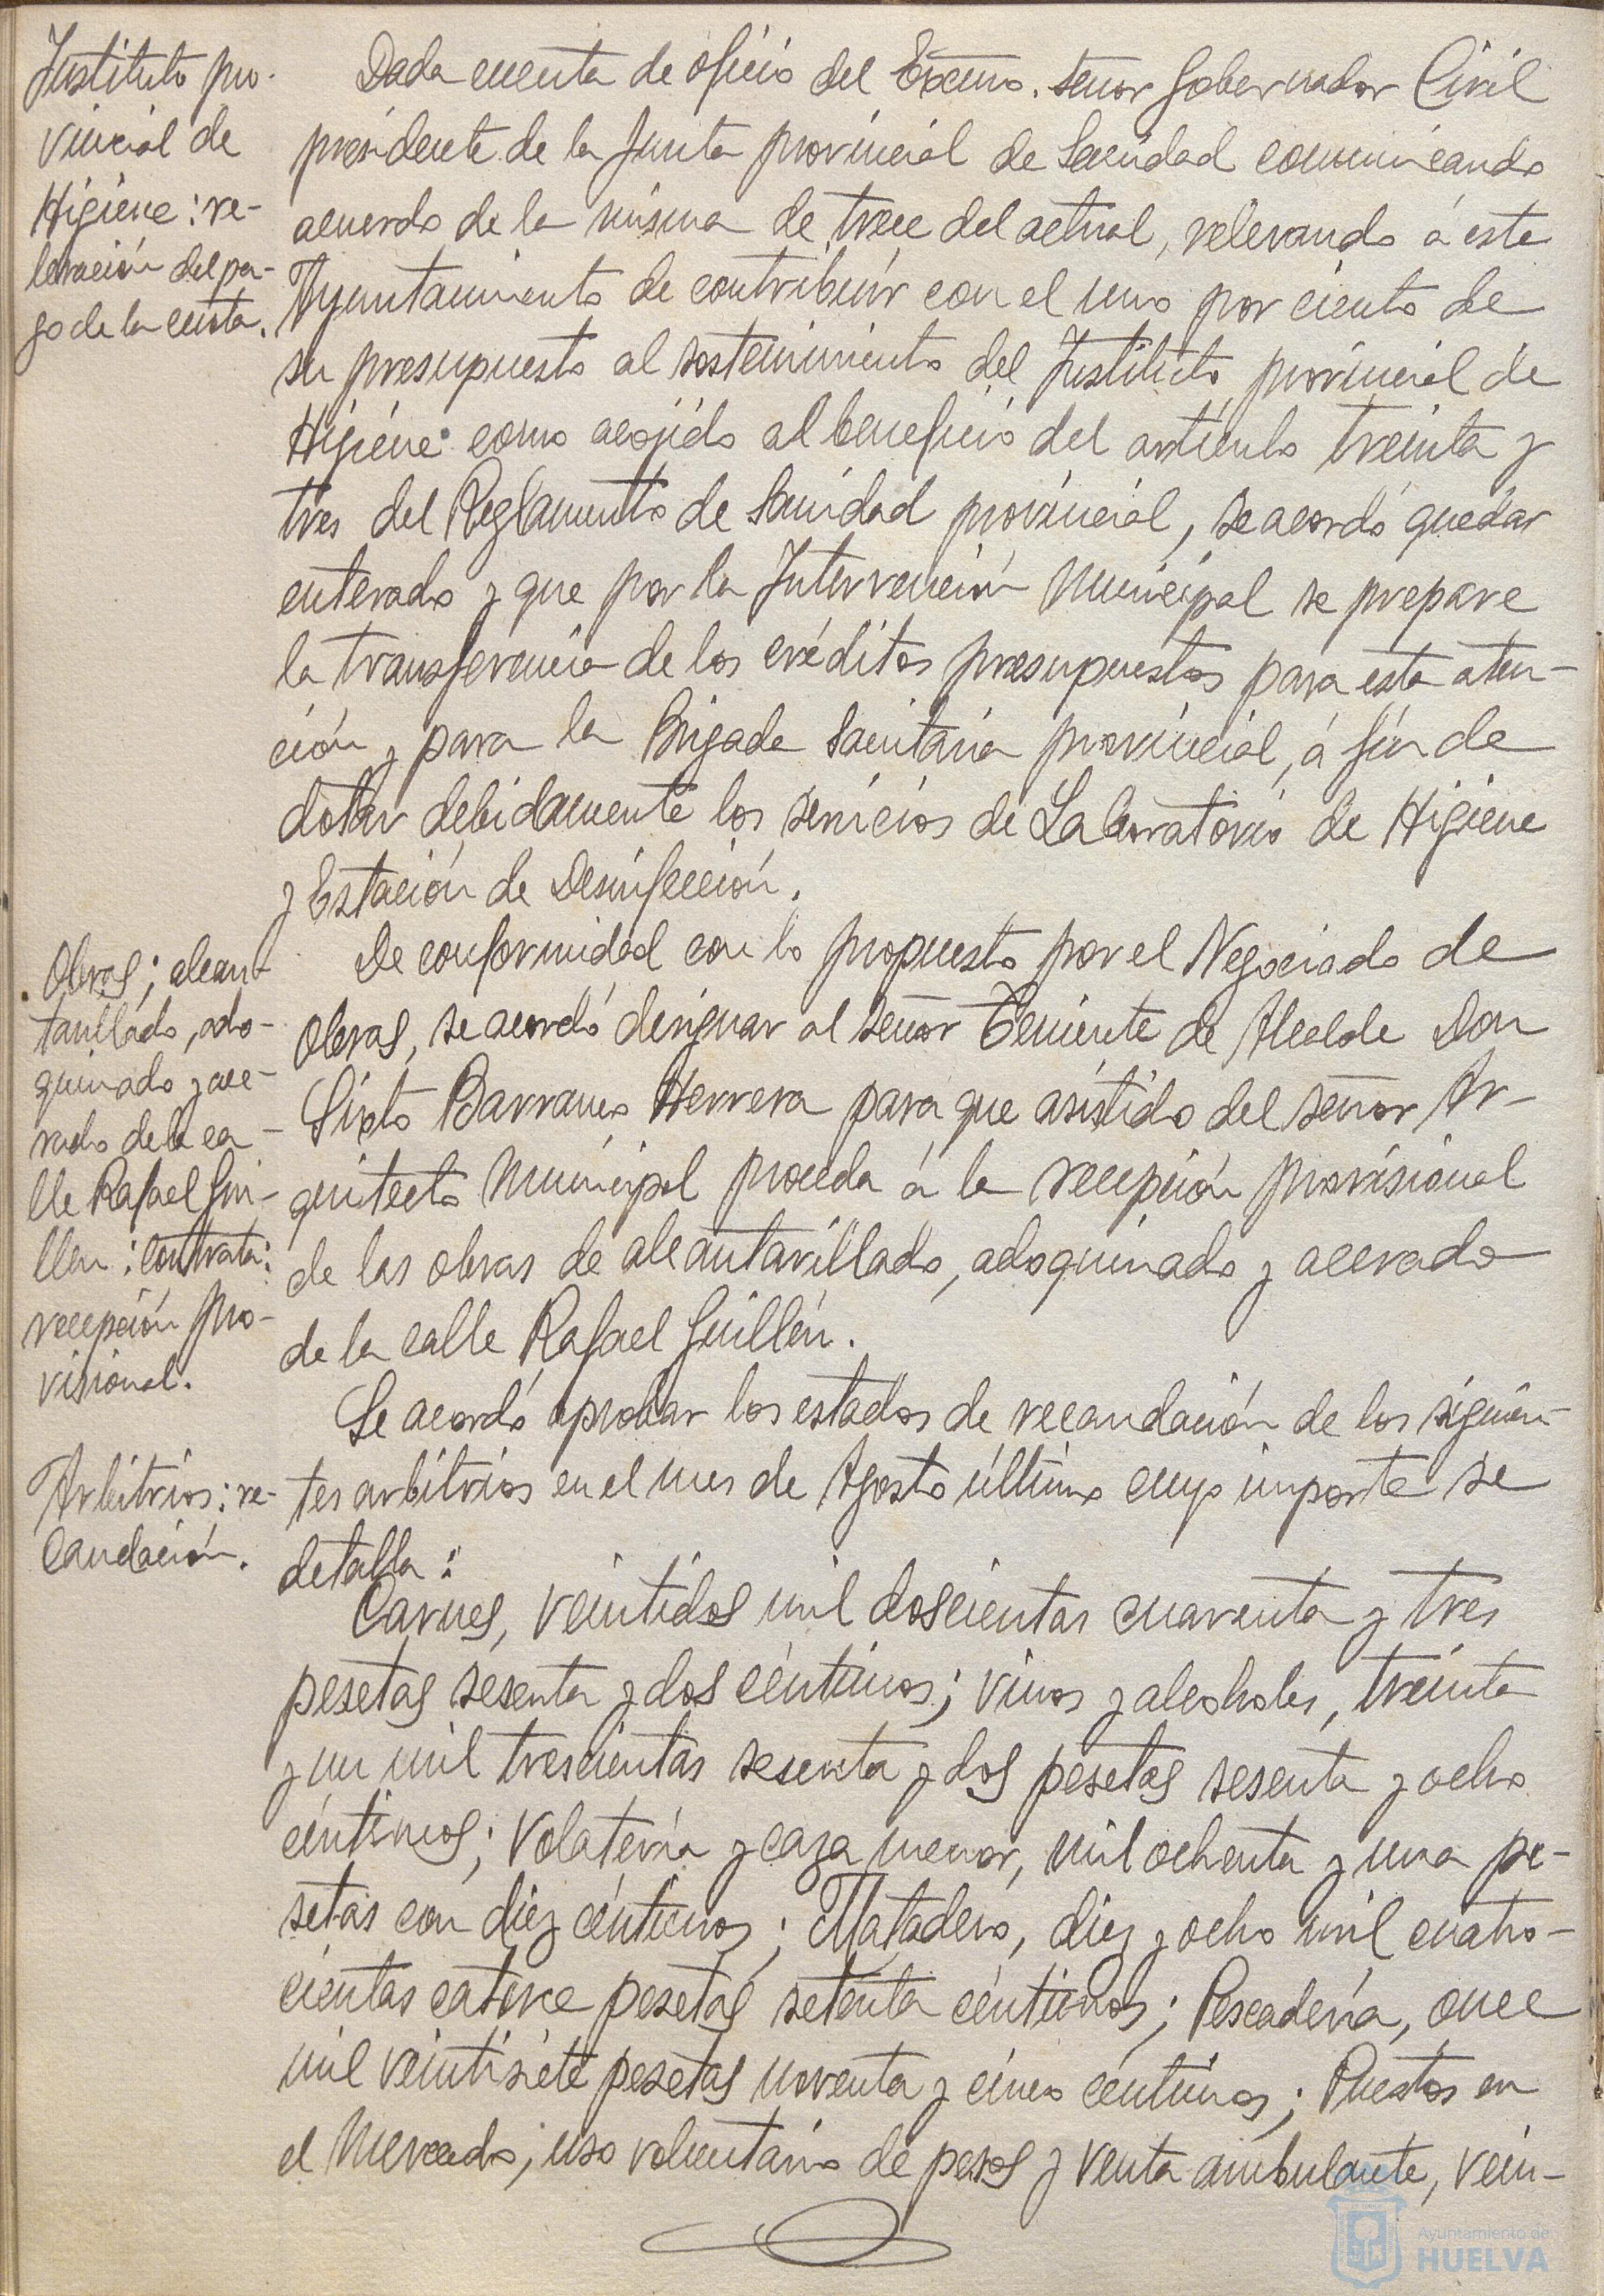 Instituto pro-
vincial de
Higiene: re-
levación del pa-
go de la cuota.
Dada cuenta de oficio del Excmo. señor Gobernador Civil
presidente de la Junta provincial de Sanidad comunicando
acuerdo de la misma de trece del actual, relevando á este
Ayuntamiento de contribuir con el uno por ciento de
su presupuesto al sostenimiento del Instituto provincial de
Higiéne como acojido al beneficio del artículo treinta y
tres del Reglamento de Sanidad provincial, se acordó quedar
enterado y que por la Intervención Municipal se prepare
la transferencia de los créditos presupuestos para esta aten-
ción y para la Brigada Sanitaria provincial, á fin de
dotar debidamente los servicios de Laboratorio de Higiene
y Estación de Desinfección.
Obras; alcan-
tarillado, ado-
quinado y ace-
rado de la ca-
lle Rafael Gui-
llen: contrata:
recepción pro-
visional.
De conformidad con lo propuesto por el Negociado de
Obras, se acordó designar al señor Teniente de Alcalde Don
Sixto Barranco Herrera para que asistido del señor Ar-
quitecto Municipal proceda á la recepción provisional
de las obras de alcantarillado, adoquinado y acerado
de la calle Rafael Guillén.
Arbitrios: re-
caudación.
Se acordó aprobar los estados de recaudación de los siguien-
tes arbitrios en el mes de Agosto último cuyo importe se
detalla:
Carnes, veintidos mil doscientas cuarenta y tres
pesetas sesenta y dos céntimos; vinos y alcoholes, treinta
y un mil trescientas sesenta y dos pesetas sesenta y ocho
céntimos; Volatería y caza menor, mil ochenta y una pe-
setas con diez céntimos; Matadero, diez y ocho mil cuatro-
cientas catorce pesetas setenta céntimos; Pescadería, once
mil veintisiete pesetas noventa y cinco céntimos; Puestos en
el Mercado, uso voluntario de pesos y venta ambulante, vein-
Ayuntamiento de
HUELVA